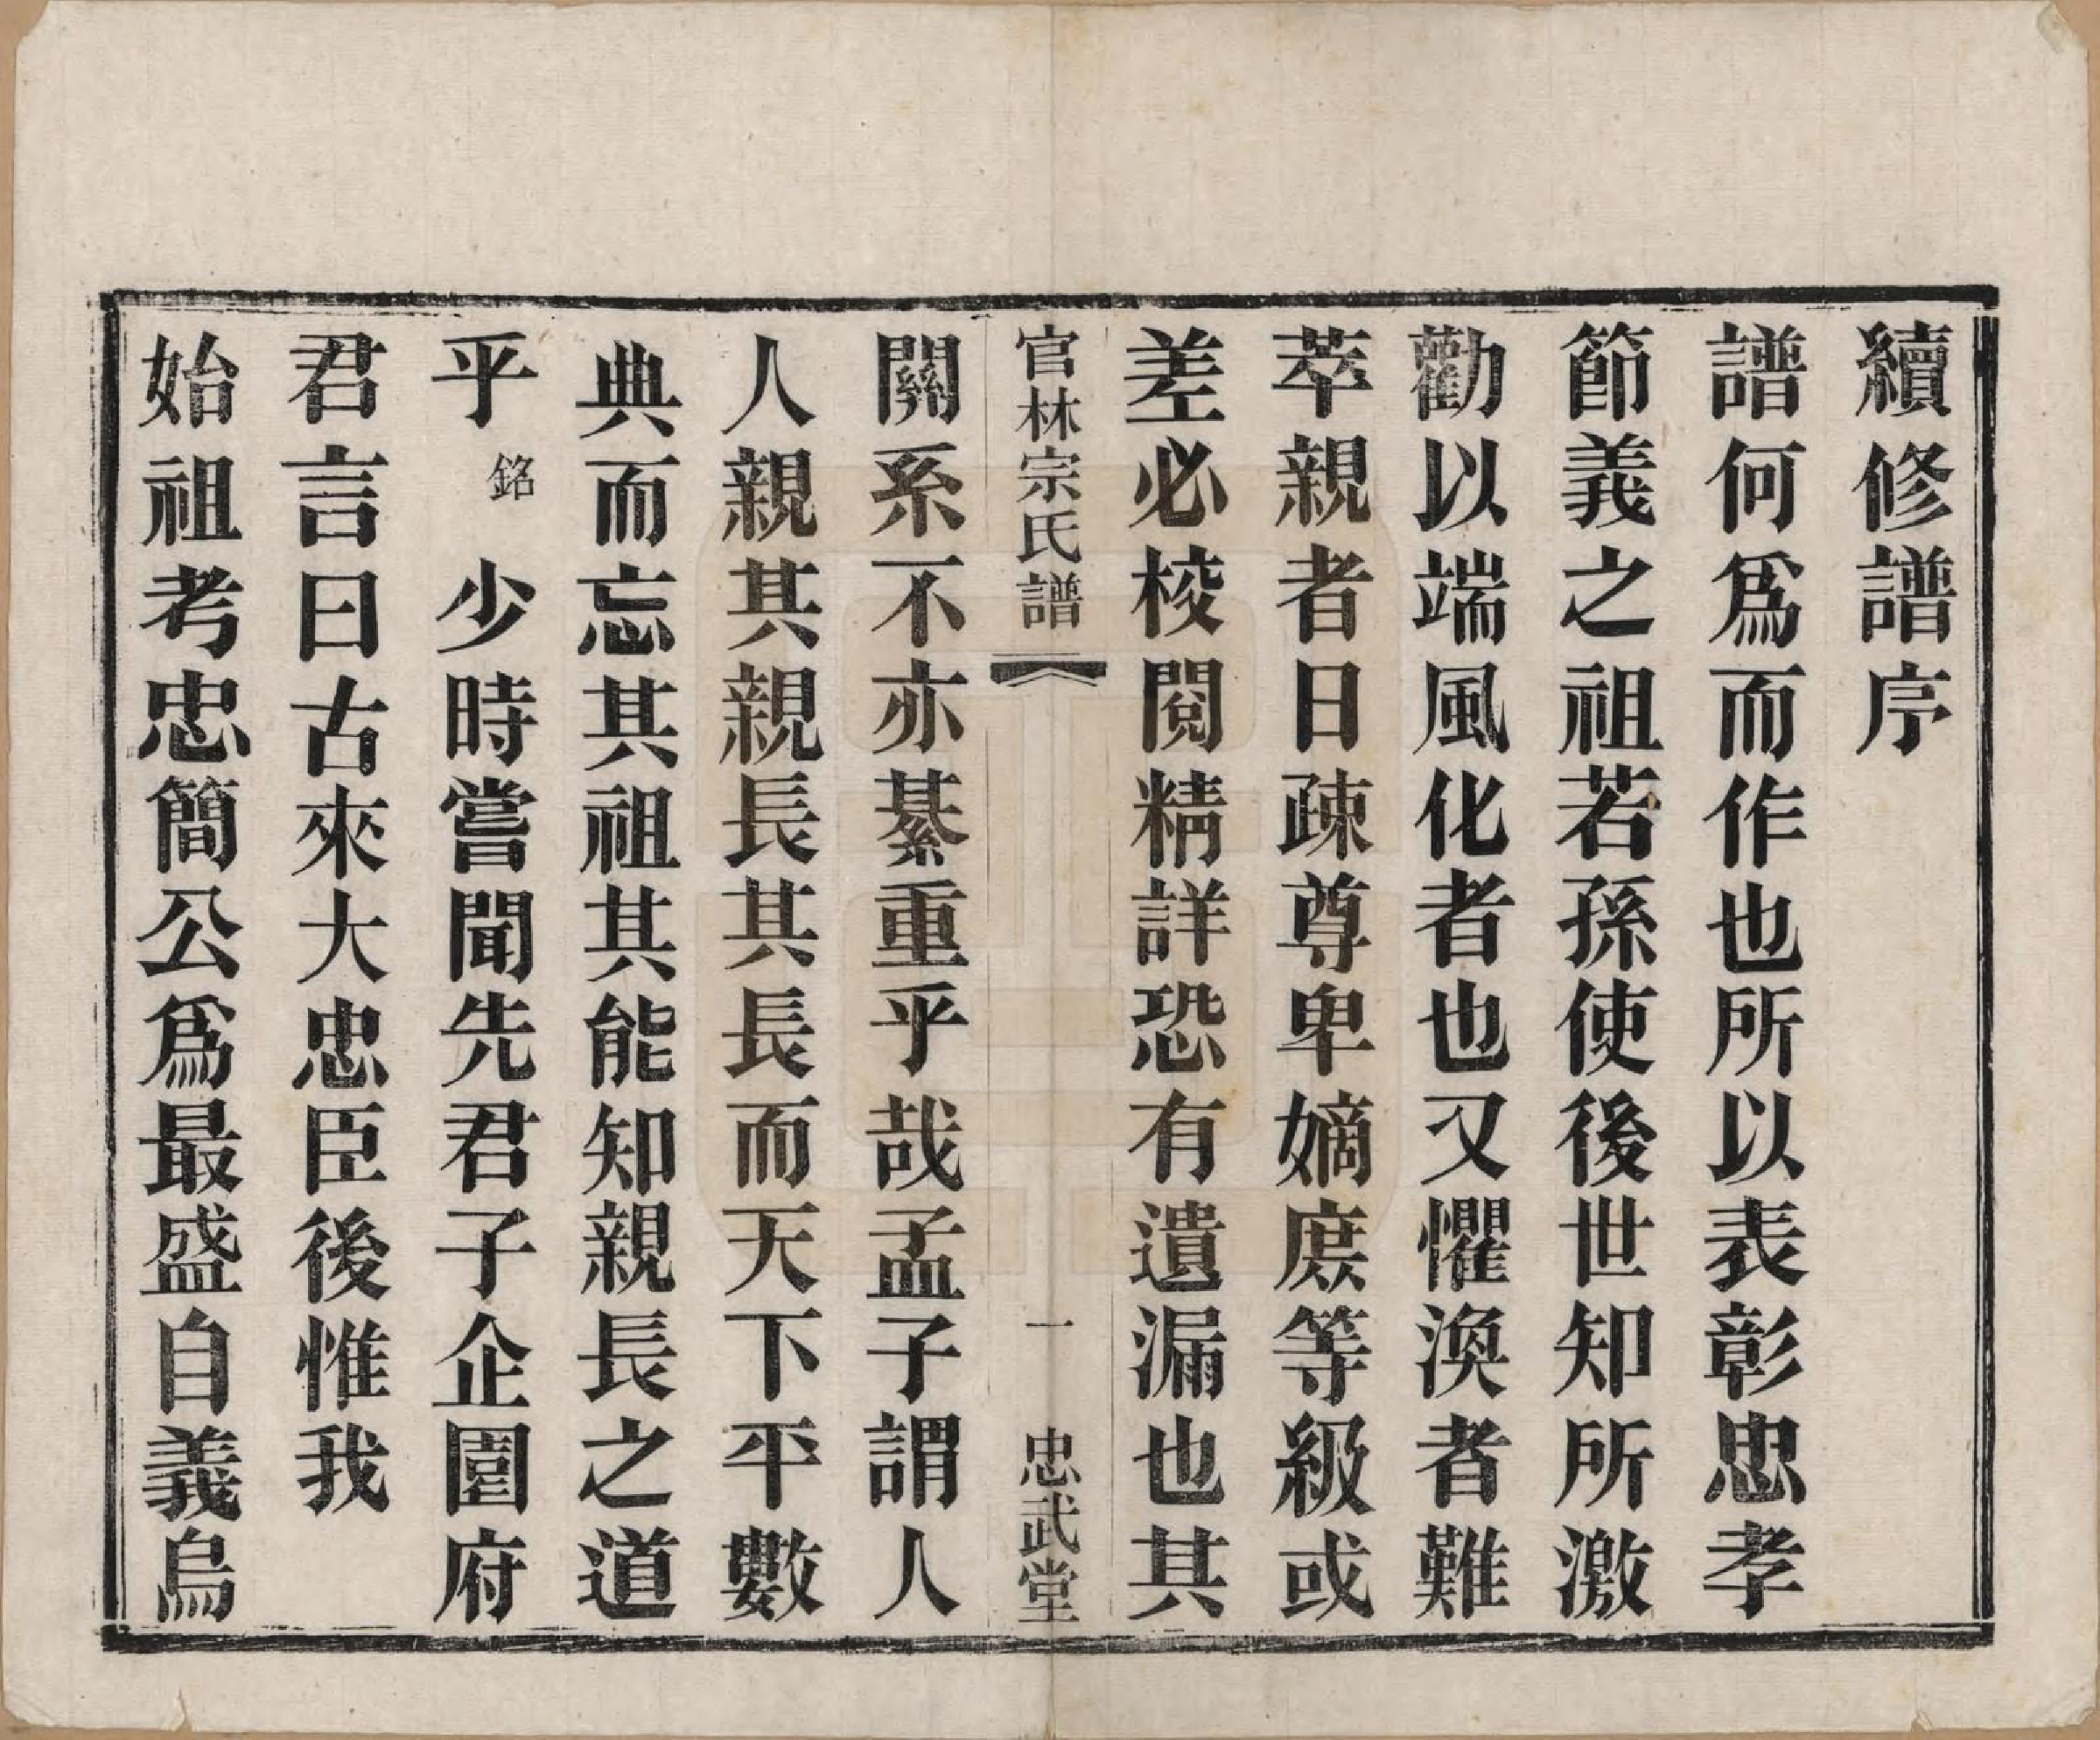 續修譜序
譜何爲而作也所以表彰忠孝
節義之祖若孫使後世知所激
勸以端風化者也又懼渙者難
萃親者日疎尊卑嫡庶等級或
差必梭閱精詳恐有遺漏也其
官林宗氏譜 一 忠武堂
關系不亦綦重乎哉孟子謂人
人親其親長其長而天下平數
典而忘其祖其能知親長之道
乎銘少時嘗聞先君子企園府
君言曰古來大忠臣後惟我
始祖考忠簡公爲最盛自義烏